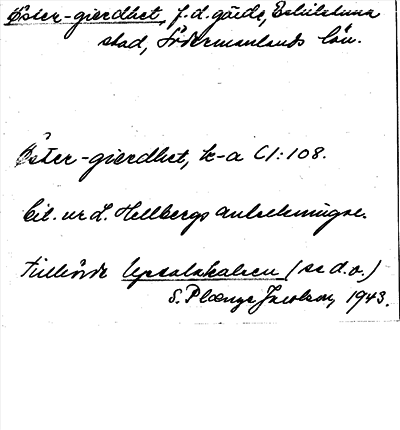 Öster-gierdhet, f.d. gärde, Eskilstuna
stad, Södermanlands län.
Öster-gierdhet, k-a C1:108.
Cit. ur L. Hellbergs anteckningar.
Tillhörde Upsalakalven (se d.o.)
S. Plænge Jacobson, 1943.